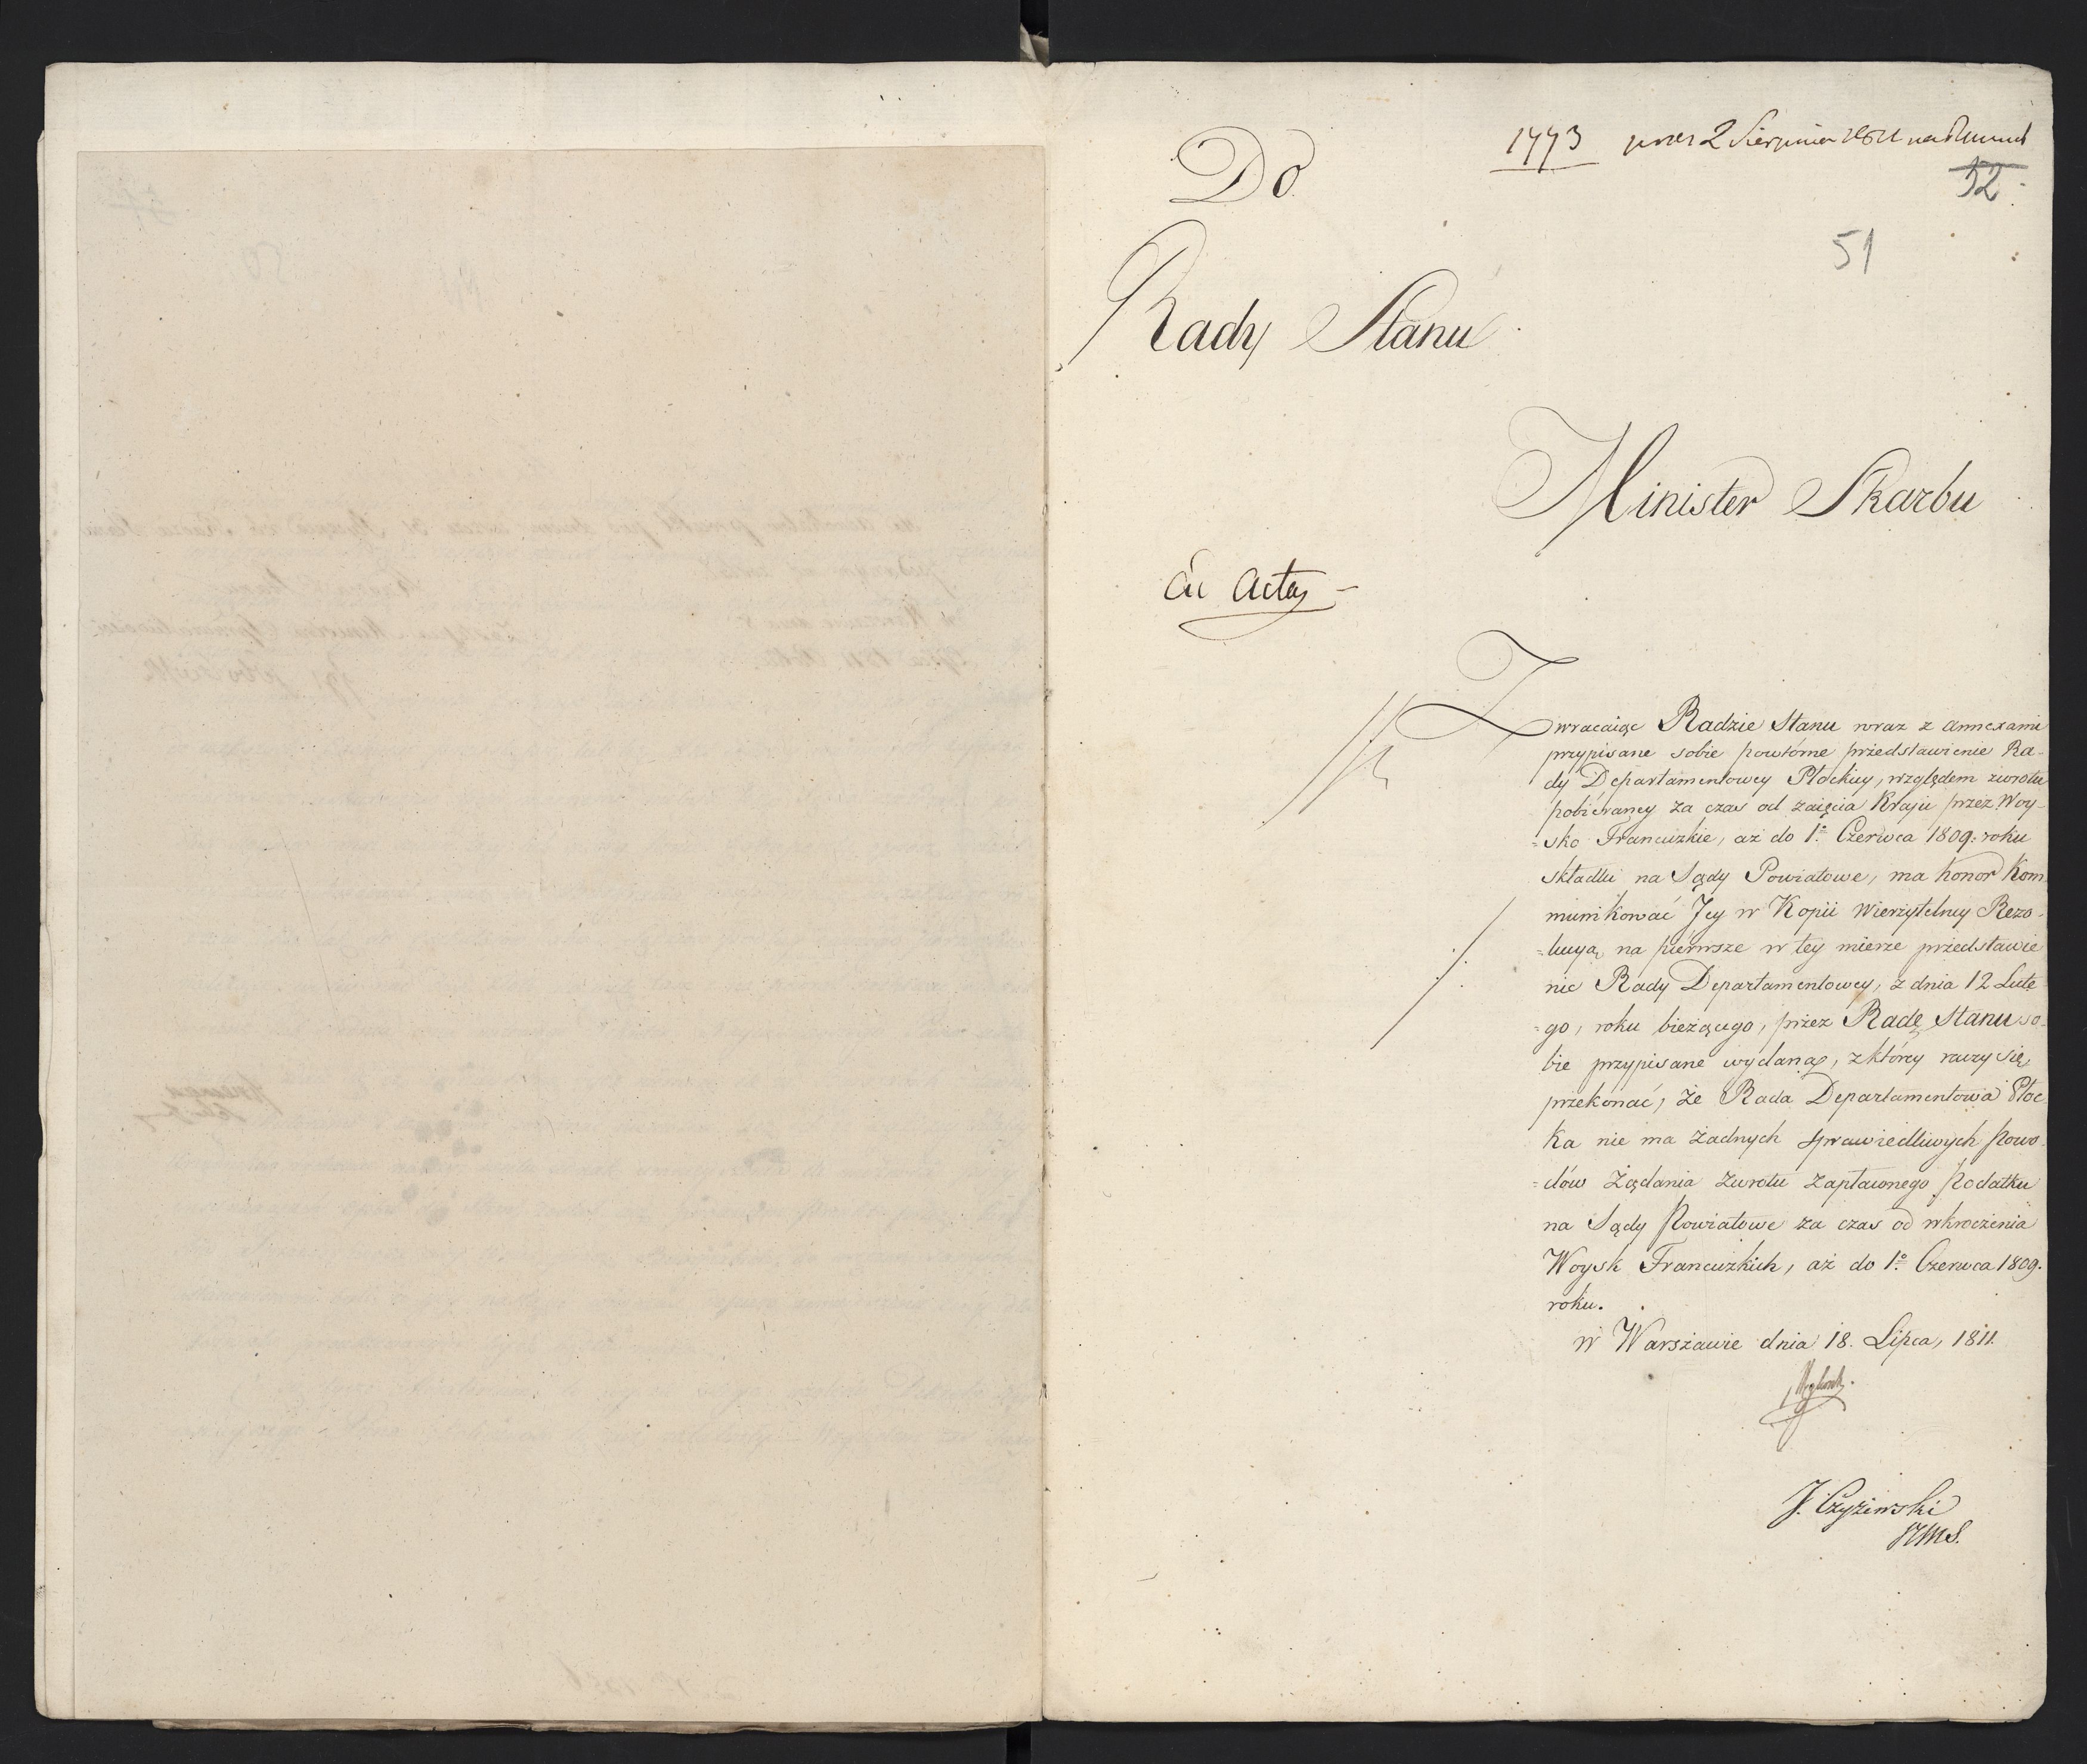 1773 prns 2 Sierpnia 1811
52
51
Do
Rady Stanu
Minister Skarbu
Ad Acta
Zwracaiąc Radzie Stanu wraz z annexami
przypisane sobie powtórne przedstawienie Ra-
dy Departamentowey Płockiey, względem zwrotu
pobieraney za czas od zaięcia Kraju przez Woy-
-sko Francuzkie, aż do 1º Czerwca 1809. roku
składki na Sądy Powiatowe, ma honor Kom
munikować Jey w Kopii wierzytelney Rezo-
-lucyą, na pierwsze w tey mierze przedstawie
nie Rady Departamentowey, z dnia 12 Lute
-go, roku bieżącego, przez Radę Stanu so-
bie przypisane wydaną, z którey raczy się
przekonać, że Rada Departamentowa Płoc
ka nie ma żadnych sprawiedliwych Powo-
-dów żądania zwrotu zapłaconego Podatku
na Sądy Powiatowe za czas od wkroczenia
Woysk Francuzkich, aż do 1º Czerwca 1809.
roku.
w Warszawie dnia 18. Lipca, 1811.
J. Czyżewski